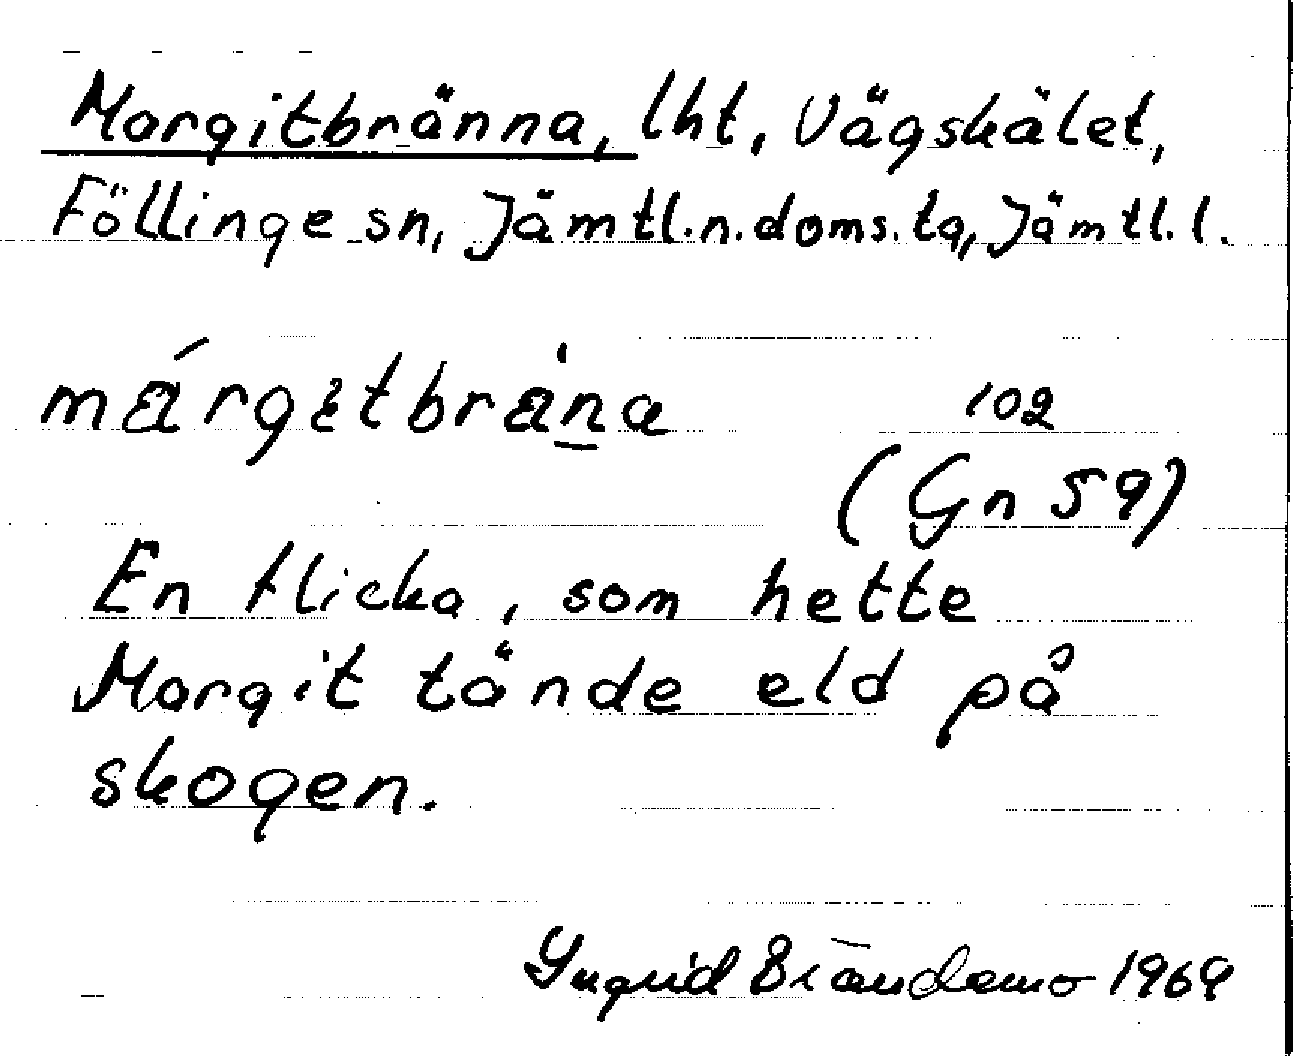 Margitbränna, lht, Vägskälet,
Föllinge sn, Jämtl.n.doms.lg, Jämtl.l.
márgitbräna
102
(Gn 59)
En flicka, som hette
Margit tände eld på
skogen.
Ingrid Brändemo 1969